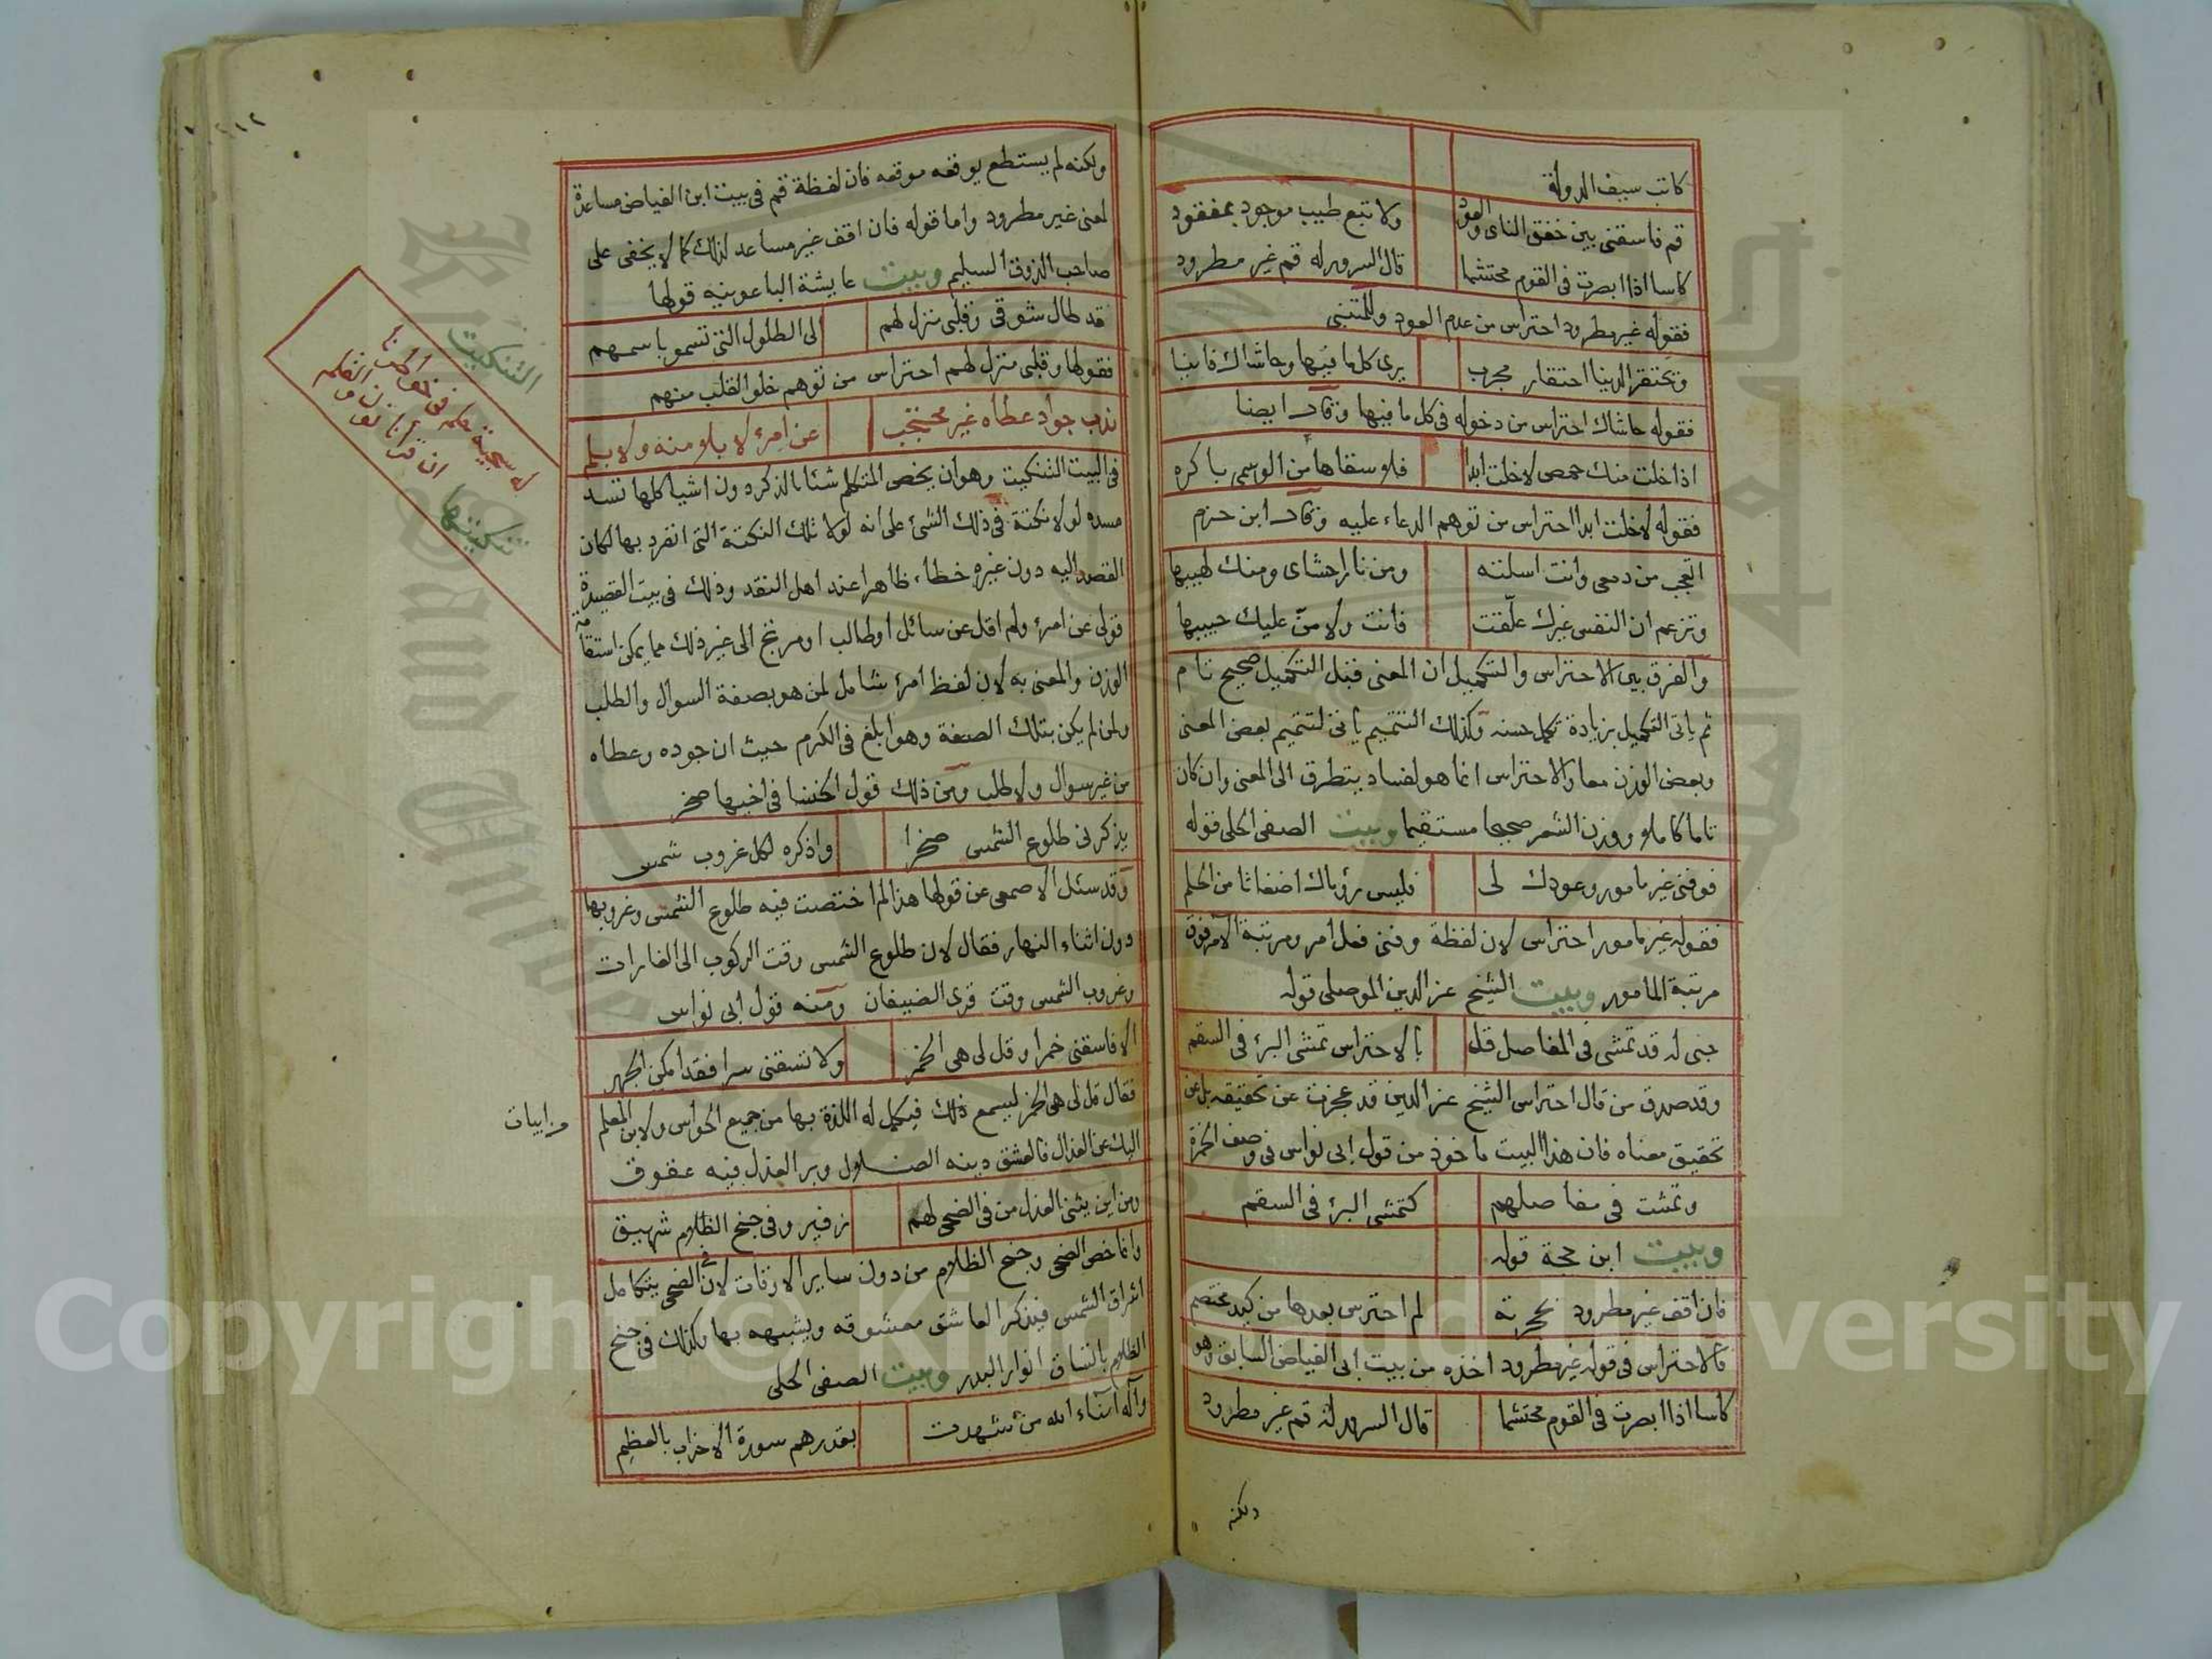 كاتب سيف الدولة
قم فاسقنى بين خفق الناى والعود ولا تبع طيب موجود بمفقود
كاسا اذا ابصرت فى القوم محتشما قال السرور له قم غير مطرود
فقوله غير مطرود احتراس من عدم العود وللمتنبى
وتحتقر الدنيا احتقار مجرب يرى كل ما فيها وحاشاك فانيا
فقوله حاشاك احتراس من دخوله فى كل ما فيها وقال ايضا
اذا خلت منك حمص لا خلت ابدا فلا سقاها من الوسمى باكره
فقوله لا خلت ابدا احتراس من توهم الدعاء عليه وقال ابن حزم
اتعجب من دمعى وانت اسلته ومن نار احشاى ومنك لهيبها
وتزعم ان النفس غيرك علّقت فانت ولا منّ عليك حبيبها
والفرق بين الاحتراس والتكميل ان المعنى قبل التكميل صحيح تام
ثم ياتى التكميل بزيادة تكمل حسنه وكذلك التتميم ياتى لتتميم بعض المعنى
وبعض الوزن معا والاحتراس انما هو لفساد يتطرق الى المعنى وان كان
تاما كاملا ووزن الشعر صحيحا مستقيما وبيت الصفى الحلى قوله
فوفنى غير مامور وعودك لى فليس رؤياك اضغاثا من الحلم
فقوله غير مامور احتراس لان لفظة وفنى فعل امر ومرتبة الامر فوق
مرتبة المامور وبيت الشيخ عز الدين الموصلى قوله
حبى له قد تمشى فى المفاصل قل بالاحتراس تمشى البرئ فى السقم
وقد صدق من قال احتراس الشيخ عز الدين قد عجزت عن تحقيقه بل عن
تحقيق معناه فان هذا البيت ماخوذ من قول ابى نواس فى وصف الخمرة
وتمشت فى مفاصلهم كتمشى البرئ فى السقم
وبيت ابن حجة قوله
فان اقف غير مطرود بحجرته لم احترس بعدها من كيد مختصم
فالاحتراس فى قوله غير مطرود اخذه من بيت ابى الفياض السابق وهو
كاسا اذا ابصرت فى القوم محتشما قال السرور له قم غير مطرود
ولكنه
٢١٢
ولكنه لم يستطع يوقعه موقعه فان لفظة قم فى بيت ابن الفياض مساعدة
لمعنى غير مطرود واما قوله فان اقف غير مساعد لذلك كما لا يخفى على
صاحب الذوق السليم وبيت عايشة الباعونيه قولها
قد طال شوقى وقلبى منزل لهم الى الطلول التى تسمو باسمهم
فقولها وقلبى منزل لهم احتراس من توهم خلو القلب منهم
ندب جواد عطاه غير محتجب عن امرئ لا بلا منه ولا بلم
فى البيت التنكيت وهو ان يخص المتكلم شئا بالذكر دون اشيا كلها تسد
مسده لولا نكتة فى ذلك الشئ على انه لولا تلك النكتة التى انفرد بها لكان
القصد اليه دون غيره خطاء ظاهرا عند اهل النقد وذلك فى بيت القصيدة
قولى عن امرئ ولم اقل عن سائل او طالب او مرتج الى غير ذلك مما يمكن استقامة
الوزن والمعنى به لان لفظ امرئ شامل لمن هو بصفة السوال والطلب
ولمن لم يكن بتلك الصفة وهو ابلغ فى الكرم حيث ان جوده وعطاه
من غير سوال ولا طلب ومن ذلك قول الخنسا فى اخيها صخر
يذكرنى طلوع الشمس صخرا واذكره لكل غروب شمس
وقد سئل الاصمعى عن قولها هذا لم اختصت فيه طلوع الشمس وغروبها
دون اثناء النهار فقال لان طلوع الشمس وقت الركوب الى الغارات
وغروب الشمس وقت قرى الضيفان ومنه قول ابى نواس
الا فاسقنى خمرا وقل لى هى الخمر ولا تسقنى سرا فقد امكن الجهر
فقال قل لى هى الخمر ليسمع ذلك فيكمل له اللذة بها من جميع الحواس ولابن المعلم
من ابيات
اليك عن العذال فالعشق دينه الضلال وبر العذل فيه عقوق
ومن اين يثنى العذل من فى الضحى لهم زفير وفى جنح الظلام شهيق
وانما خص الضحى وجنح الظلام من دون ساير الاوقات لان فى الضحى يتكامل
اشراق الشمس فيذكر العاشق معشوقه ويشبهه بها وكذلك فى جنح
الظلام باتساق انوار البدر وبيت الصفى الحلى
وآله امناء الله من شهدت بقدرهم سورة الاحزاب بالعظم
التنكيت
له سجية
تنكيتها